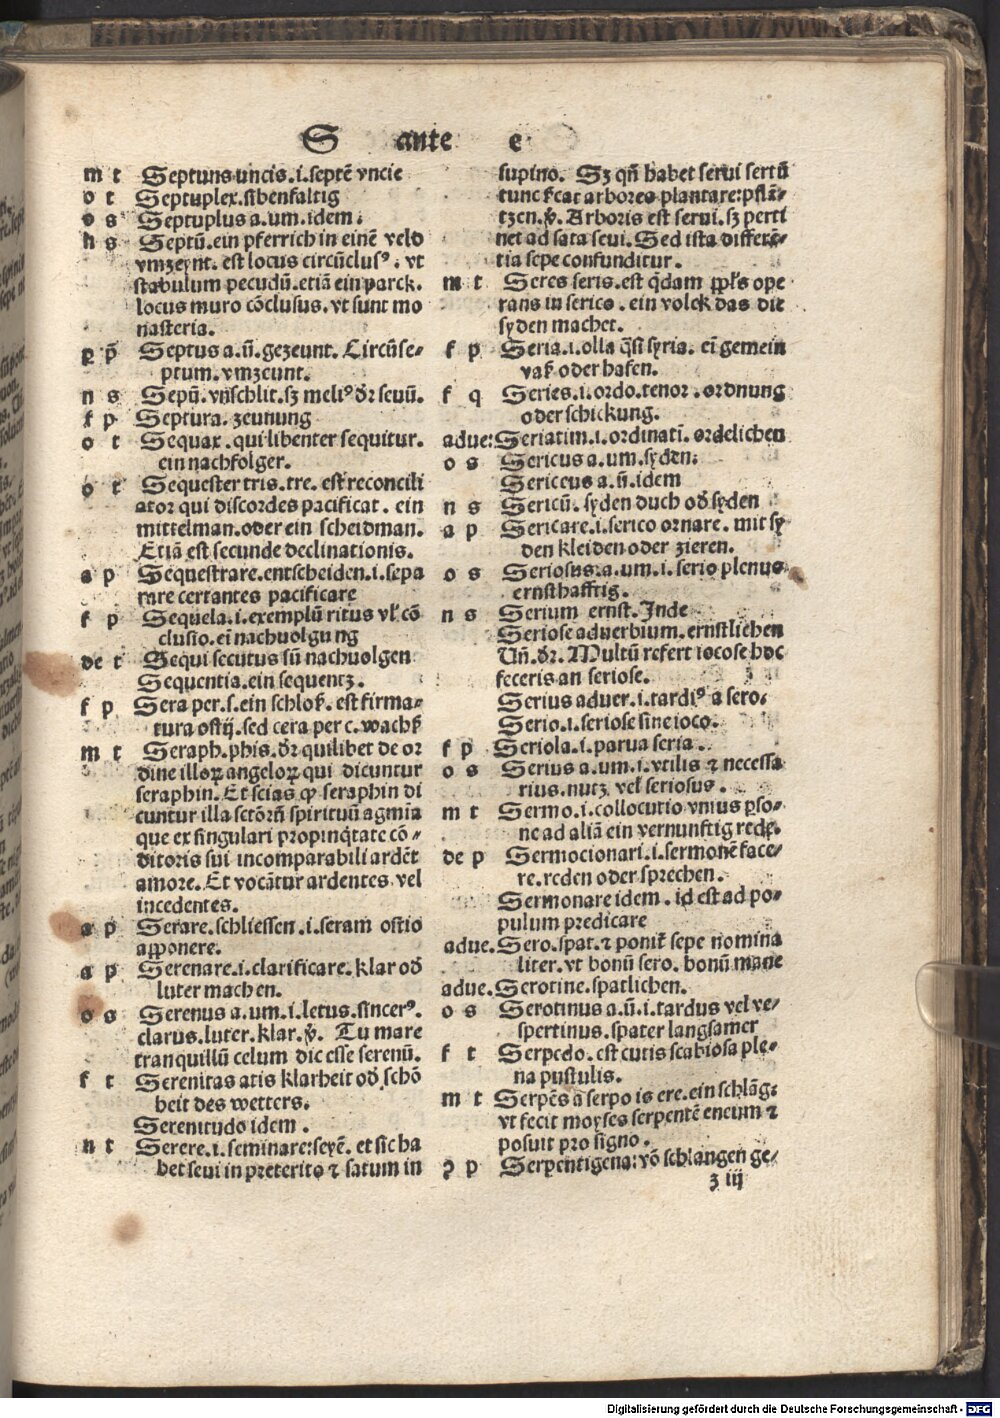 S ante e
m t Septuns uncis.i.septē vncie
o t Septuplex.sibenfaltig
o s Septuplus a.um.idem.
n s Septū.ein pferrich in einē veld
vmzeynt. est locus circūclusꝰ. vt
stabulum pecudū.etiā ein parck.
locus muro cōclusus.vt sunt mo
nasteria.
Septus a.ū.gezeunt. Circūse-
ptum.vmzeunt.
n s vnschlit.sꝫ meliꝰ dr seuū.
f p Septura. zeunung
o t Sequax.qui libenter sequitur.
ein nachfolger.
o t Sequester tris.tre. est reconcili
ator qui discordes pacificat. ein
mittelman.oder ein scheidman.
Etiā est secunde declinationis.
a p Sequestrare.entscheiden.i.sepa
rare certantes pacificare
f p Sequela.i.exemplū ritus vl' cō
clusio.ei nachuolgung
de t Sequi secutus sū nachuolgen
Sequentia.ein sequentz.
f p Sera per.s.ein schloß. est firma-
tura ostij.sed cera per c.wachß
m t Seraph.phis.dr quilibet de or
dine illoꝝ angeloꝝ qui dicuntur
seraphin. Et scias ꝙ seraphin di
cuntur illa sctōrū spirituū agmia
que ex singulari propinqtate cō-
ditoris sui incomparabili ardēt
amore. Et vocātur ardentes vel
incedentes.
a p Serare.schliessen.i.seram ostio
aꝓponere.
a p Serenare.i.clarificare.klar od
luter machen.
o s Serenus a.um.i.letus.sincerꝰ.
clarus.luter.klar.ꝟ. Tu mare
tranquillū celum dic esse serenū.
f t Serenitas atis klarheit od schō
heit des wetters.
Serenitudo idem.
n t Serere.i.seminare:seyē. et sic ha
bet seui in preterito ⁊ satum in
supino. Sꝫ qn habet serui sertū
tunc sicat arbores plantare:pflā-
tzen.ꝟ. Arboris est serui.sꝫ perti
net ad sata seui. Sed ista differē-
tia sepe confunditur.
m t Seres seris.est qdam ppls ope
rans in serico. ein volck das die
syden machet.
f p Seria.i.olla qsi syria. ei gemein
vaß oder hafen.
f q Series.i.ordo.tenor.ordnung
oder schickung.
adue: Seriatim.i.ordinati. ordelichen
o s Sericus a.um.syden.
Sericeus a.ū.idem
n s Sericū. syden duch od syden
a p Sericare.i.serico ornare. mit sy
den kleiden oder zieren.
o s Seriosus.a.um.i.serio plenus
ernsthafftig.
n s Serium ernst. Inde
Seriose aduerbium.ernstlichen
Uñ.dr. Multū refert iocose hoc
feceris an seriose.
Serius aduer.i.tardiꝰ a sero.
Serio.i.seriose sine ioco.
f p Seriola.i.parua seria.
o s Serius a.um.i.vtilis ⁊ necessa
rius.nutz. vel seriosus.
m t Sermo.i.collocutio vnius ꝑso-
ne ad aliā ein vernunftig rede.
de p Sermocionari.i.sermonē face-
re.reden oder sprechen.
Sermonare idem. id est ad po-
pulum predicare
adue. Sero.spat.⁊ ponit sepe nomina
liter.vt bonū sero. bonū mane
adue. Serotine.spatlichen.
o s Serotinus a.ū.i.tardus vel ve-
spertinus.spater langsamer
f t Serpedo.est cutis scabiosa ple-
na pustulis.
m t Serpēs a serpo is ere.ein schlāg.
vt fecit moyses serpentē eneum ⁊
posuit pro signo.
p Serpentigena:vō schlangen ge-
z iij
Digitalisierung gefördert durch die Deutsche Forschungsgemeinschaft - DFG